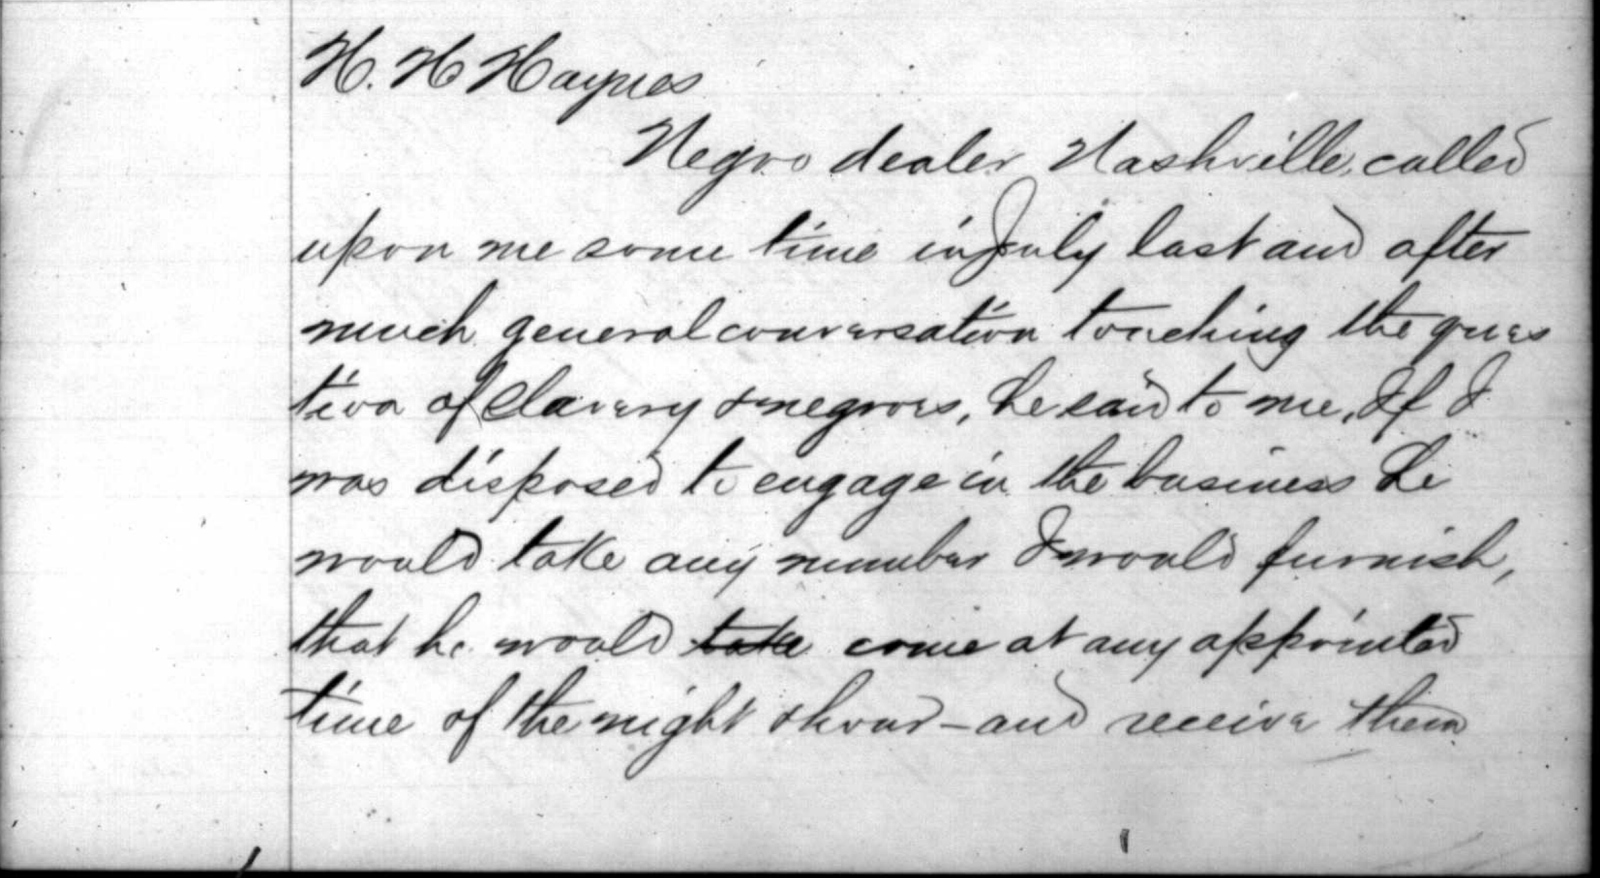 H. H Haynes
Negro dealer Nashville, called
upon me some time in July last and after
much general conversation touching the ques
tion of Slavery & negroes, he said to me, If I
was disposed to engage in the business he
would take any number I would furnish,
that he would take come at any appointed
time of the night & hour - and receive them